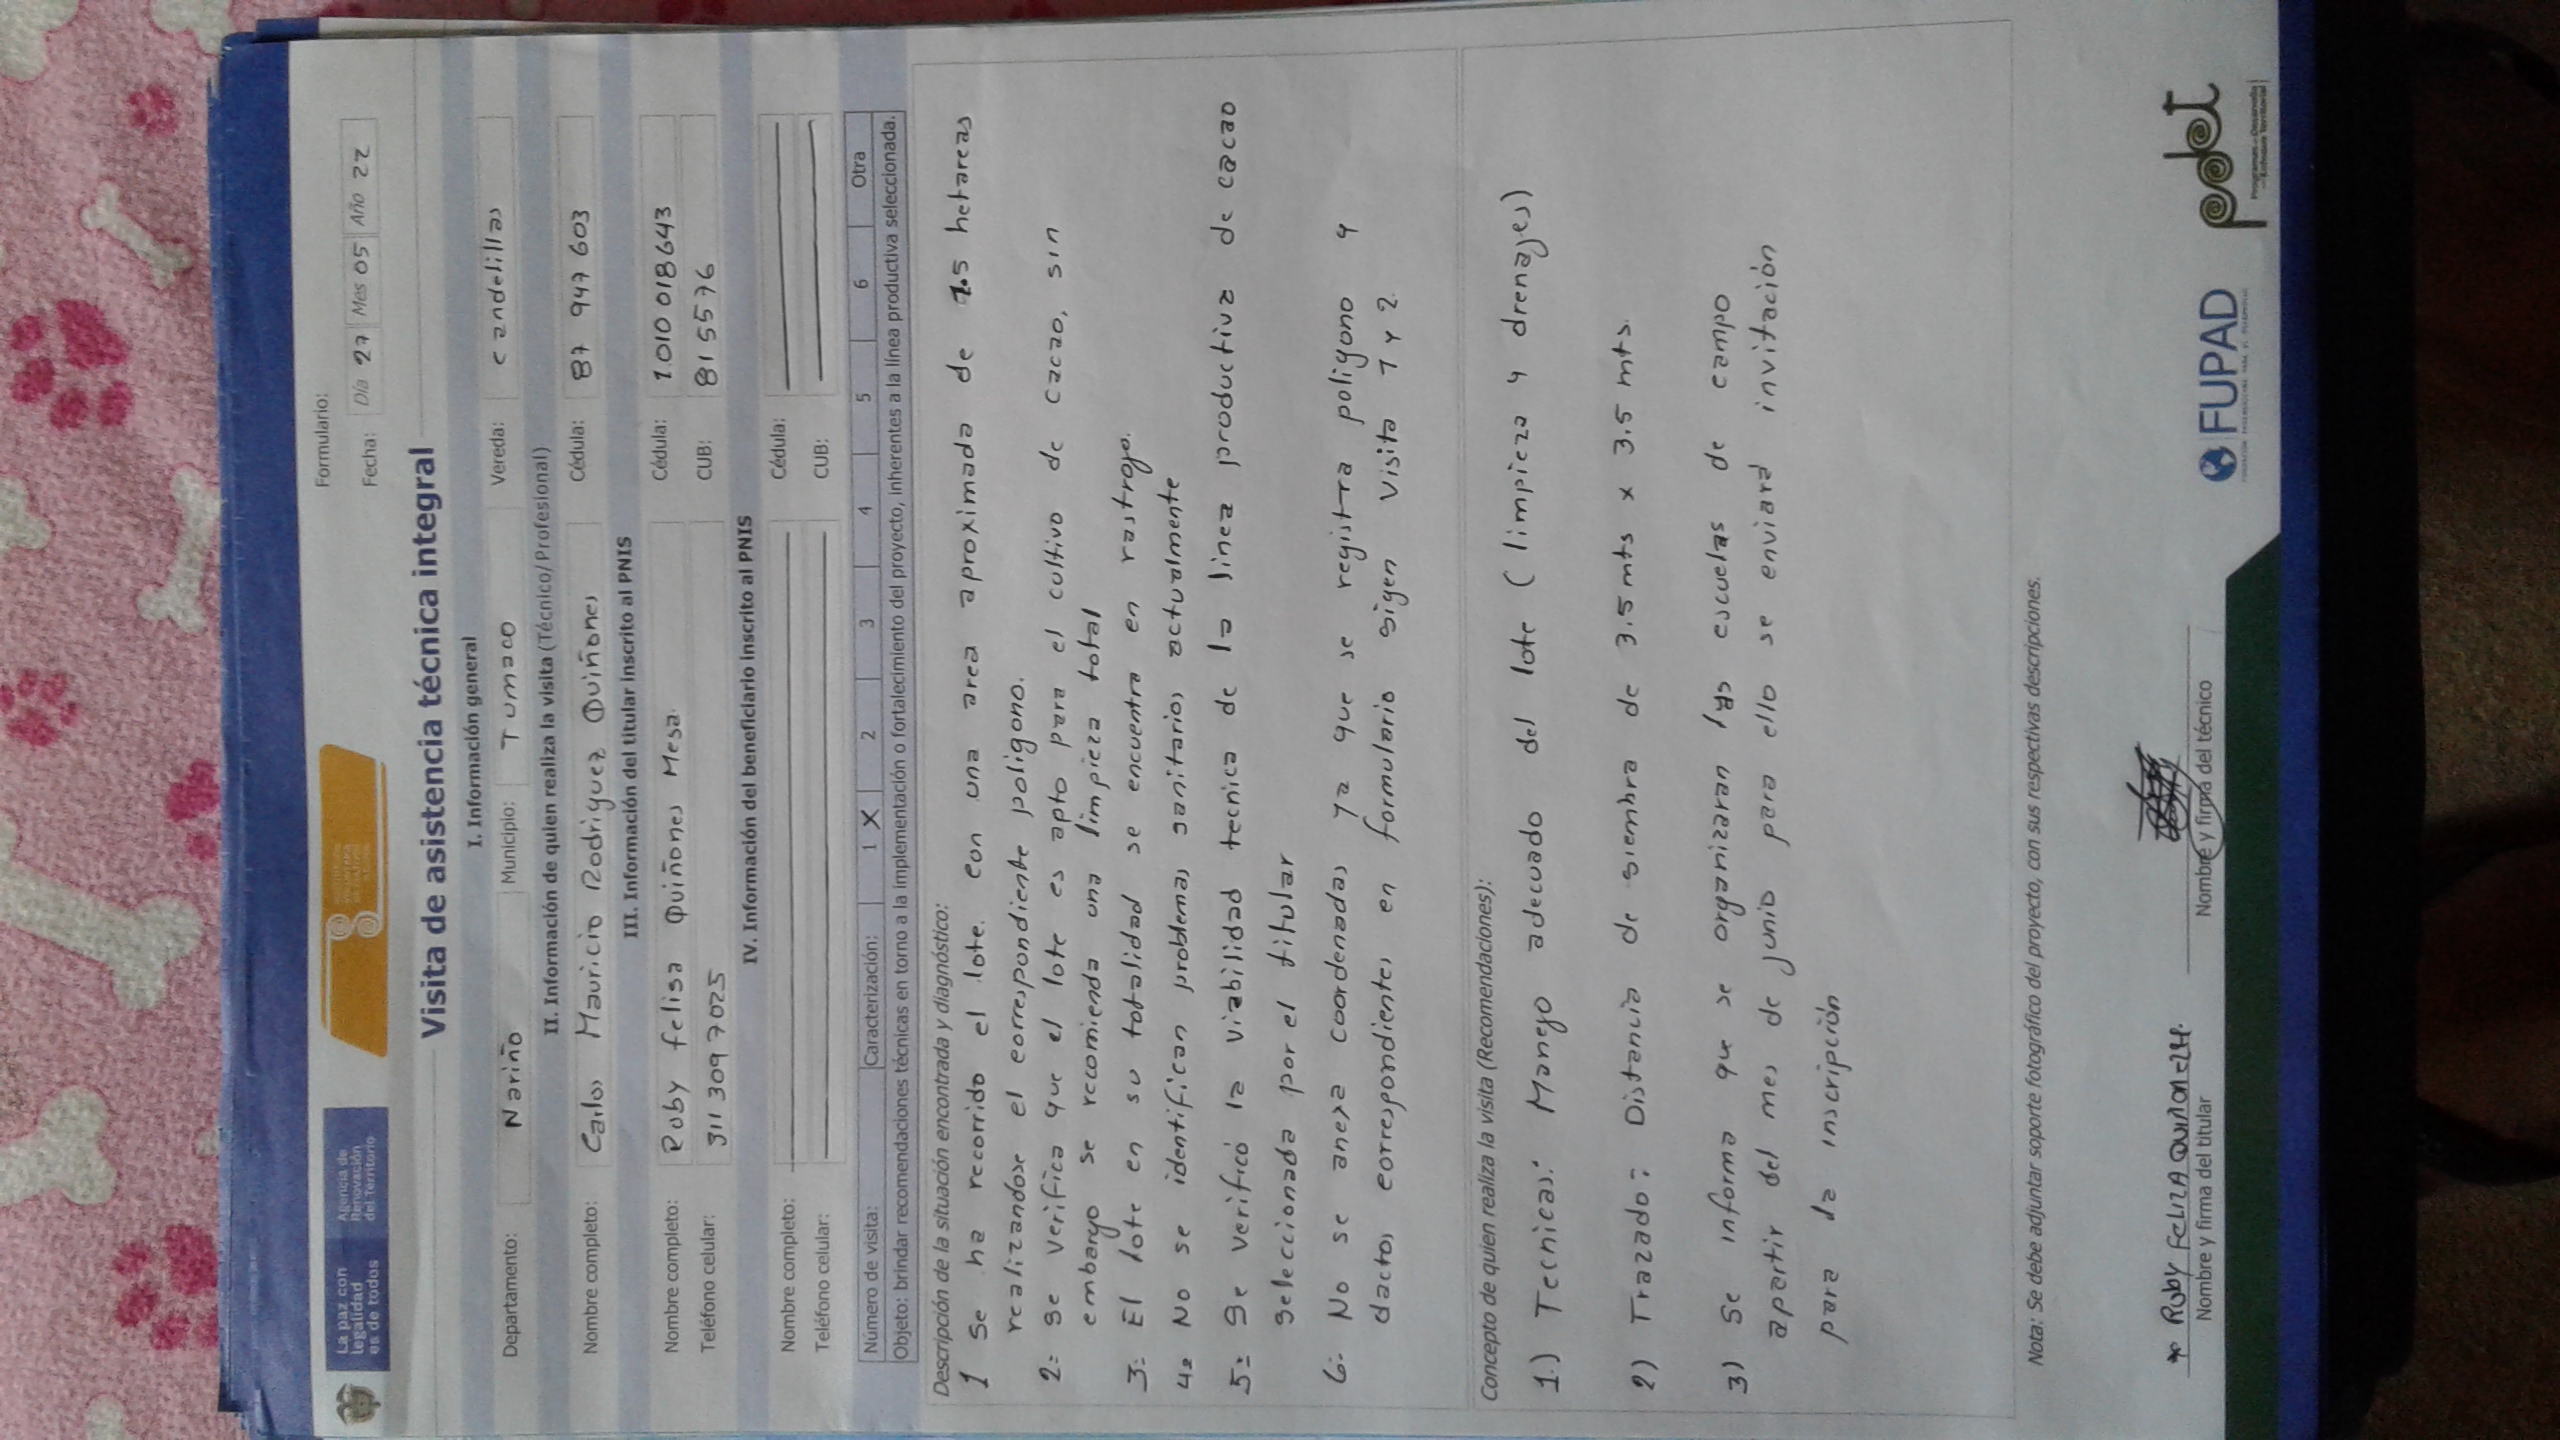 La paz con
legalidad
es de todos
Agencia de
Renovación
del Territorio
Formulario:
Fecha: Día 27 Mes 05 Año 22
Visita de asistencia técnica integral
I. Información general
Departamento: Nariño Municipio: Tumaco Vereda: candelillas
II. Información de quien realiza la visita (Técnico/Profesional)
Nombre completo: Carlos Mauricio Rodriguez Quiñones Cédula: 87 947 603
III. Información del titular inscrito al PNIS
Nombre completo: Ruby felisa Quiñones Mesa. Cédula: 1010 018643
Teléfono celular: 311 309 7025 CUB: 815576
IV. Información del beneficiario inscrito al PNIS
Nombre completo: Cédula:
Teléfono celular: CUB:
Número de visita: Caracterización: 1 X 2 3 4 5 6 Otra
Objeto: brindar recomendaciones técnicas en torno a la implementación o fortalecimiento del proyecto, inherentes a la línea productiva seleccionada.
Descripción de la situación encontrada y diagnóstico:
1 se ha recorrido el lote. con una area aproximada de hetareas
realizandose el correspondiente poligono.
2: se verifica que el lote es apto para el cultivo de cacao, sin
embargo se recomienda una limpieza total
3: El lote en su totalidad se encuentra en rastrojo.
4: No se identifican problemas sanitarios actualmente
5: se verificó la viabilidad tecnica de la linea productiva de cacao
seleccionada por el titular
6: No se anexa coordenadas ya que se registra poligono y
dactos correspondientes en formulario sigen visita 1 y 2.
Concepto de quien realiza la visita (Recomendaciones):
1.) Tecnicas: Manejo adecuado del lote (limpieza y drenajes)
2) Trazado: Distancia de siembra de 3.5 mts x 3.5 mts.
3) se informa que se organizaran las escuelas de campo
apartir del mes de junio para ello se enviará invitación
para la inscripción
Nota: Se debe adjuntar soporte fotográfico del proyecto, con sus respectivas descripciones.
Ruby Feliza Quiñonez M.
Nombre y firma del titular
Nombre y firma del técnico
FUPAD
pdet